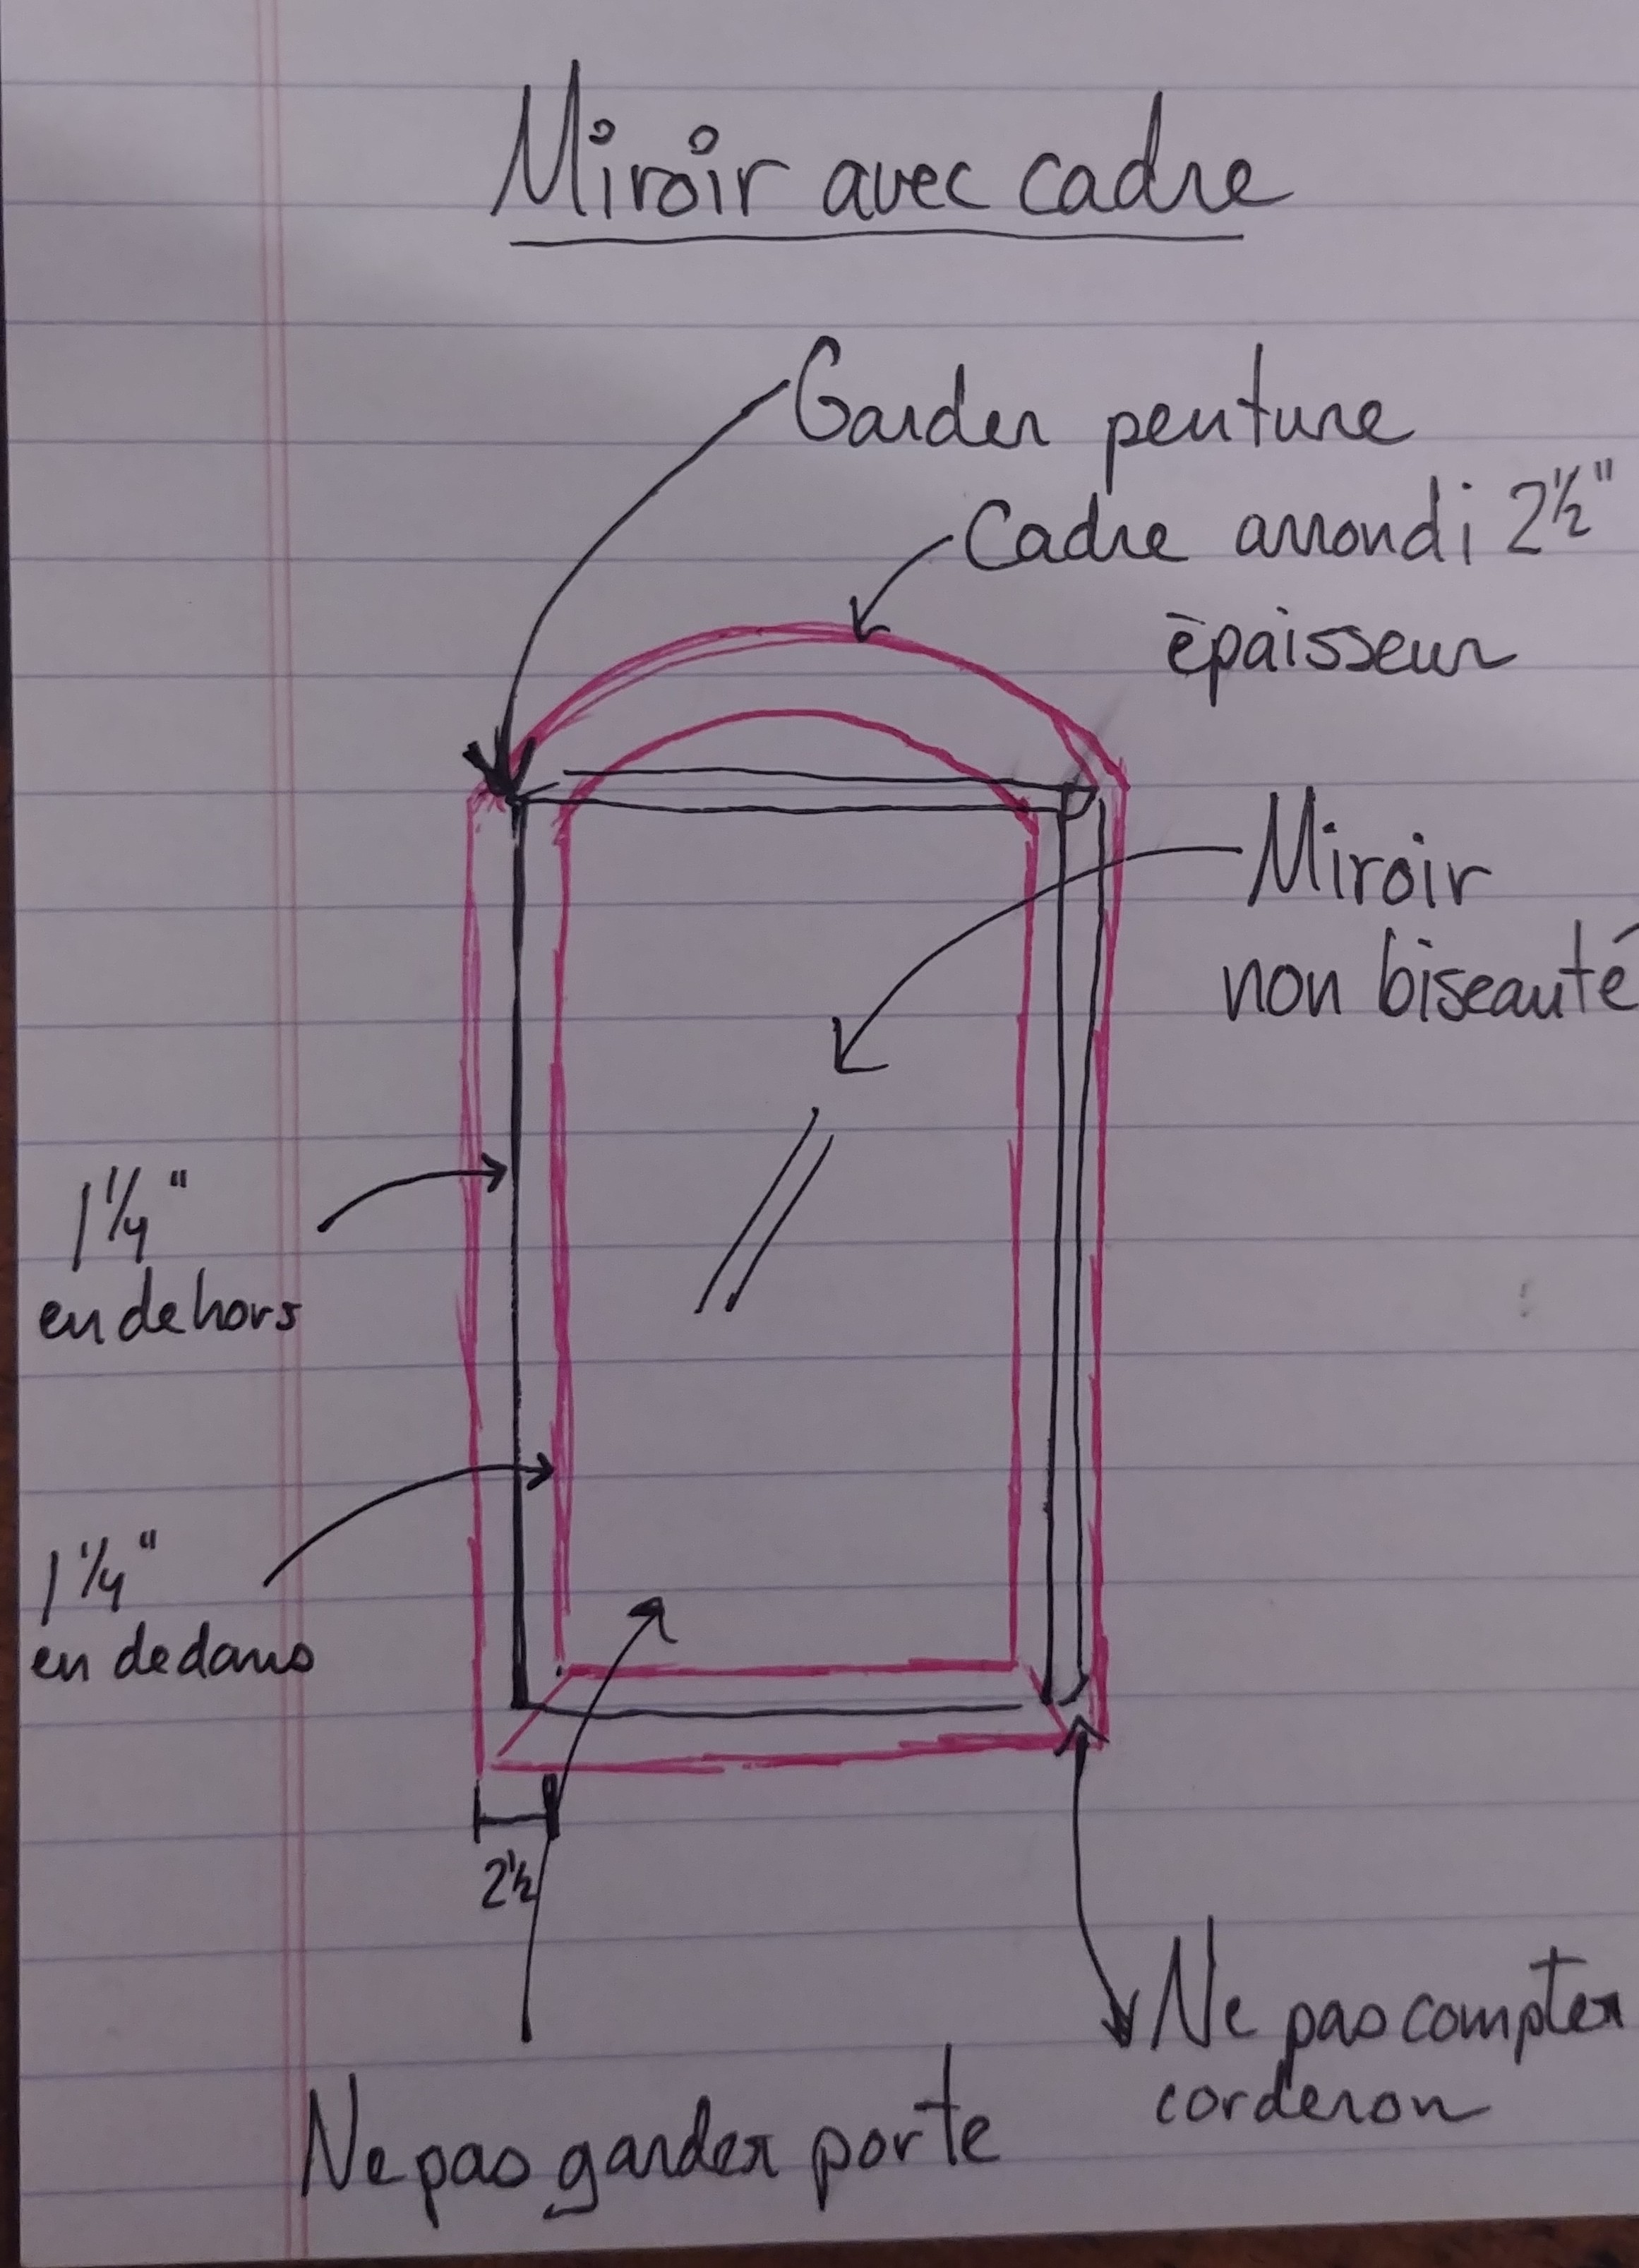 Miroir avec cadre
Garder penture
Cadre arrondi 2 1/2"
épaisseur
Miroir
non biseauté
1 1/4"
en dehors
1 1/4"
en dedans
2 1/2
Ne pas compter
corderon
Ne pas garder porte